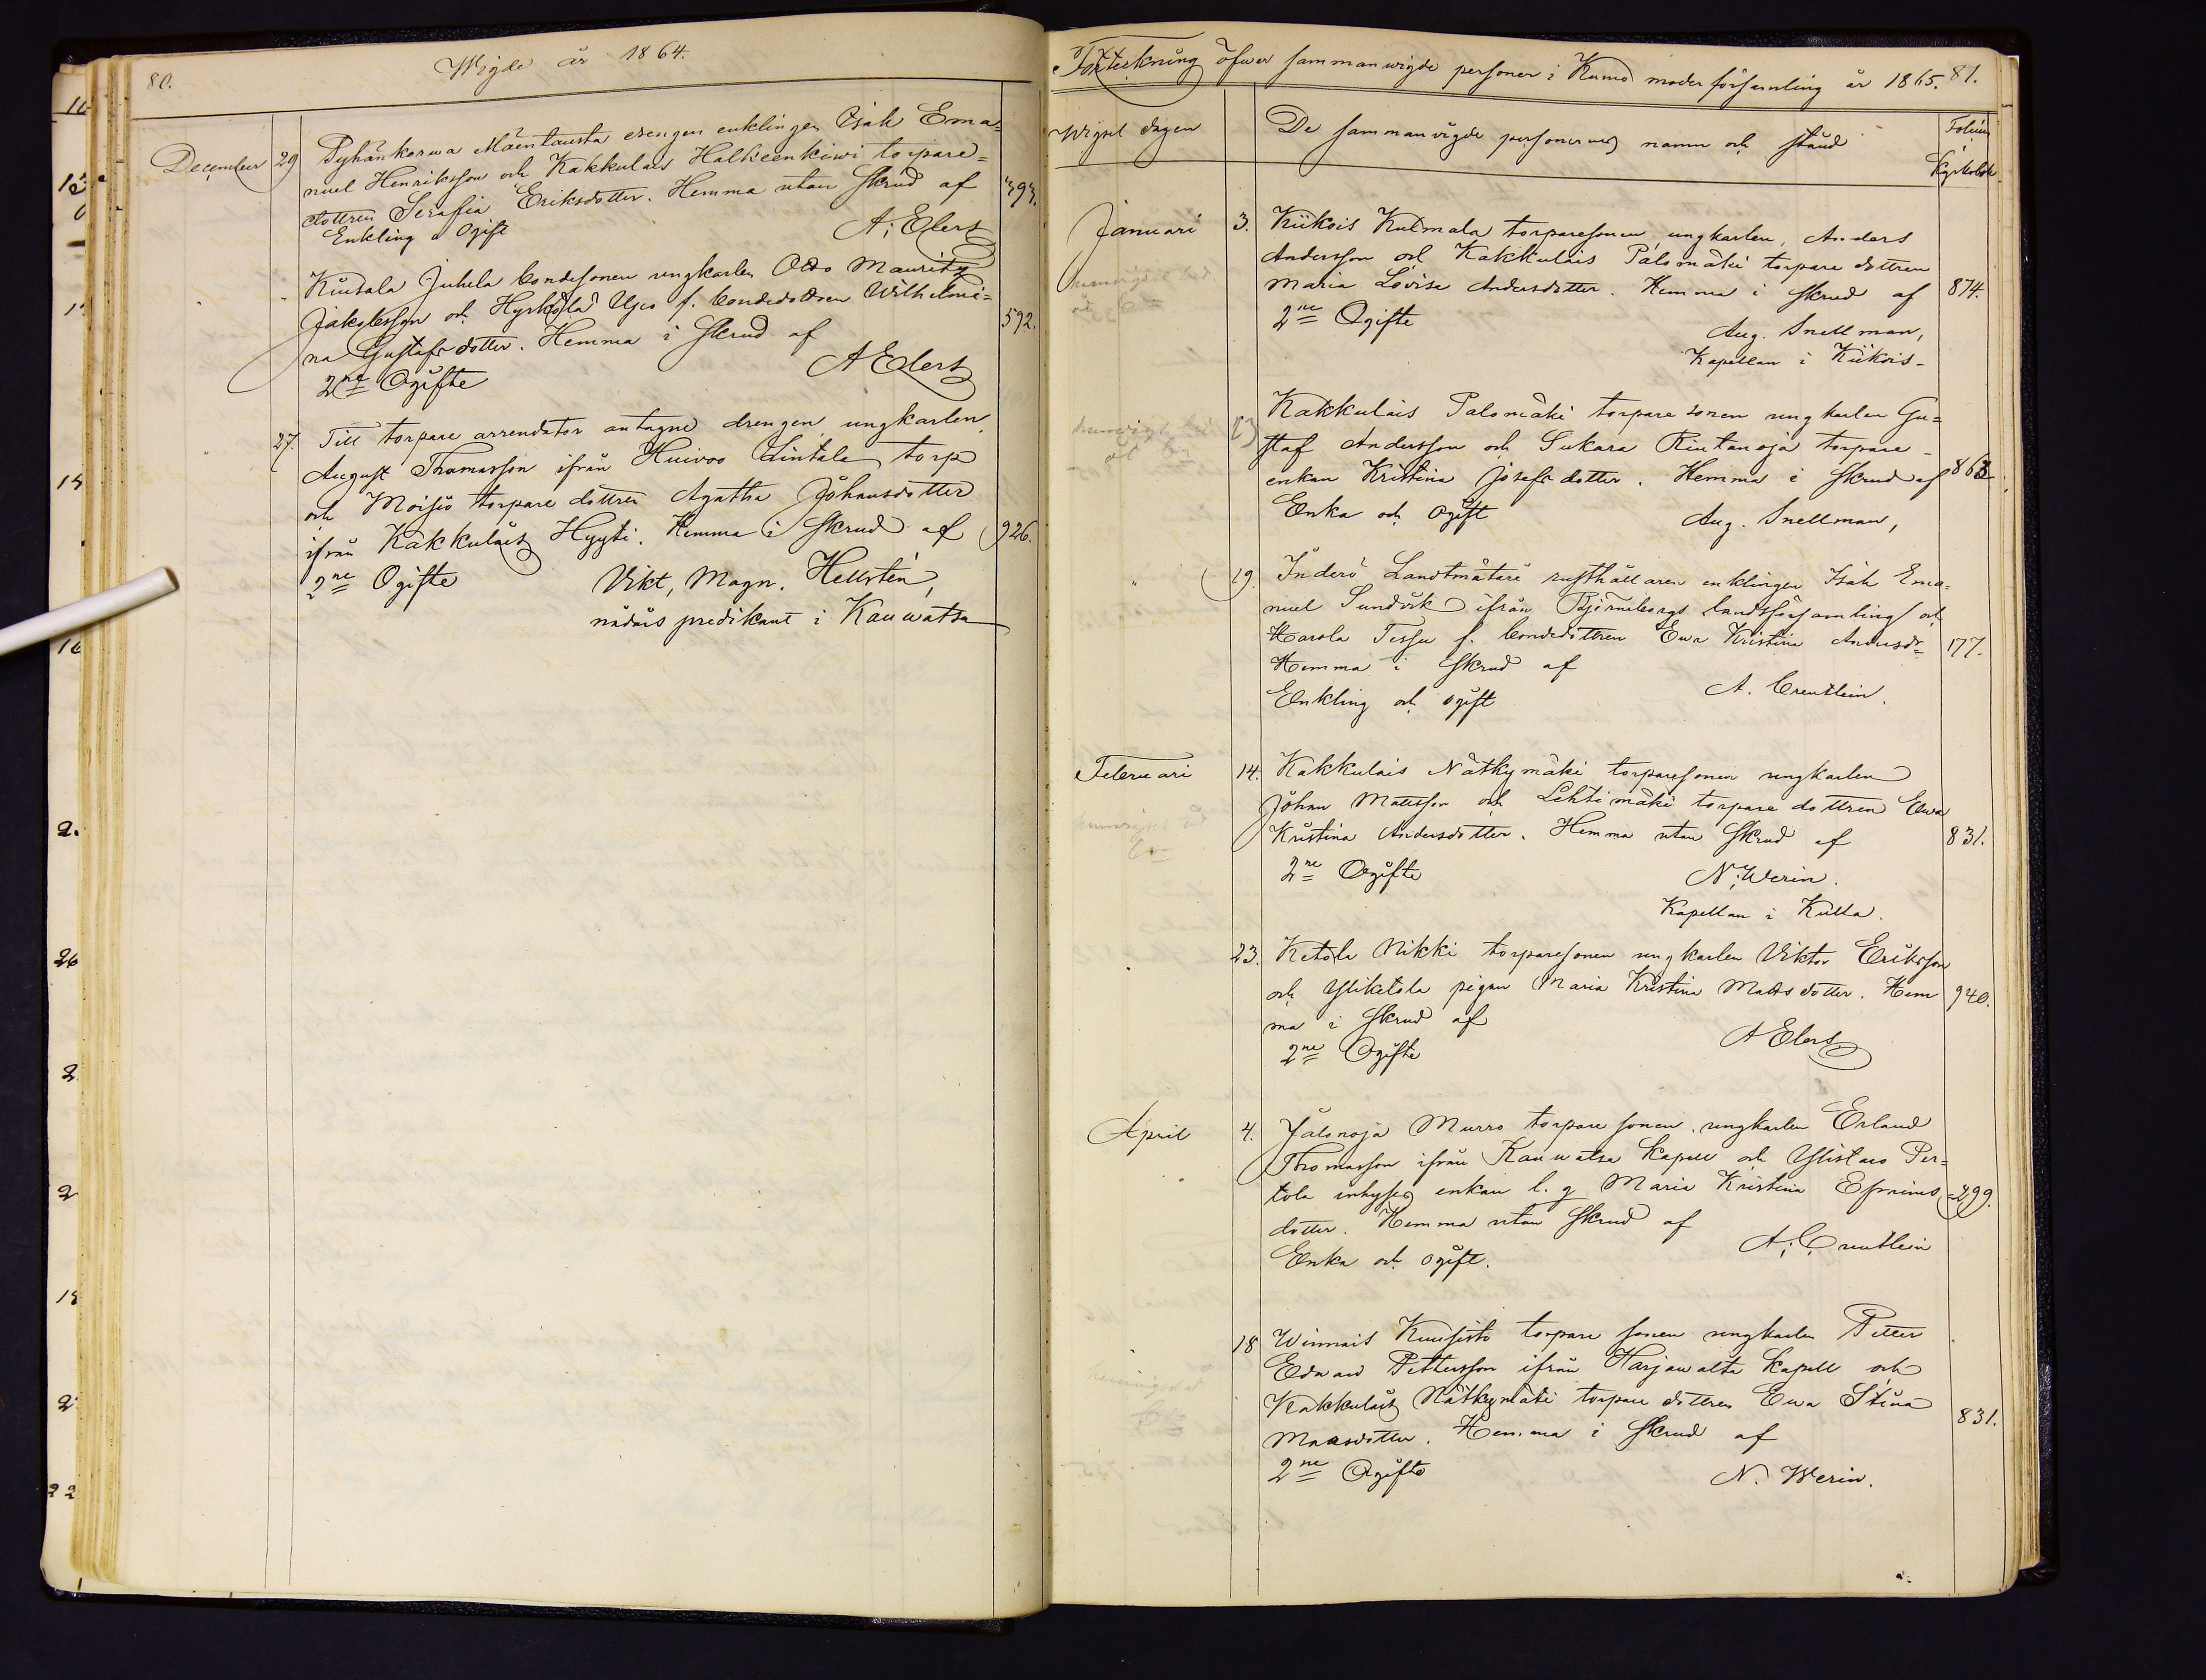 80. Wigde år 1864.
December 29 Pyhänkorwa Mäentausta drengen enklingen Isak Ema=
nuel Henriksson och Kakkulais Halkeenkiwi torpare=
dottren Serafia Eriksdotter. Hemma utan skrud af 393.
Enkling o Ogift A. Elers
Kiutala Juhela bondesonen ungkarlen Otto Mauritz
Jakobsson och Hyrkölä Ujco f. bondedottren Wilhelmi=
na Gustafsdotter. Hemma i skrud af 592.
2ne Ogifte A Elers
27. Till torpare arrendator antagne drengen ungkarlen
August Thomasson ifrån Huivoo Lintala torp
och Moisio torpare dottren Agatha Johansdotter
ifrån Kakkulais Hyyti. Hemma i skrud af 926.
2ne Ogifte Vikt, Magn. Hellstén,
nådårs predikant i Kauwatsa
Förteckning öfwer sammanwigde personer i Kumo moderförsamling år 1865. 81.
Wigsel dagen De sammanwigde personernes namn och stånd Folium i Kyrkobok
Januari 3. Kiikois Kulmala torparesonen ungkarlen, Anders
Andersson och Kakkulais Palomäki torpare dottren
Maria Lovisa Andersdotter. Hemma i skrud af 874.
2ne Ogifte Aug. Snellman,
Kapellan i Kiikois
Kakkulais Palomäki torpare sonen ungkarlen Gu=
staf Andersson och Sukara Rintanoja torpare
enkan Kristina Josefsdotter. Hemma i skrud af 863
Enka och ogift Aug. Snellman,
" 19. Inderö Landtmätare rusthållaren enklingen Isak Ema=
nuel Sundvik ifrån Björneborgs landsförsamling och
Harola Tessu f. bondedottren Ewa Kristina Andersdr 177.
Hemma i skrud af
Enkling och ogift A. Creutlein.
Februari 14. Kakkulais Nätkymäki torparesonen ungkarlen
Johan Mattsson och Lehtimäki torpare dottren Ewa
Kristina Andersdotter. Hemma utan skrud af 831.
2ne Ogifte N. Werin.
Kapellan i Kulla.
23. Ketola Nikki torparesonen ungkarlen Viktor Eriksson
och Yliketola pigan Maria Kristina Mattsdotter. Hem 940.
ma i skrud af
2ne Ogifte A Elers
April 4. Jalonoja Murro torpare sonen ungkarlen Erland
Thomasson ifrån Kauwatsa Kapell och Ylistaro Per=
tola inhyses enkan l. g Maria Kristina Efraims= 299.
dotter. Hemma utan skrud af
Enka och ogift. A. Creutlein
18 Winnais Kuusisto torpare sonen ungkarlen Petter
Edward Pettersson ifrån Harjawalta Kapell och
Kakkulais Nätkymäki torpare dottren Ewa Stina
Matsdotter. Hemma i skrud af 831.
2ne Ogifte N. Werin.